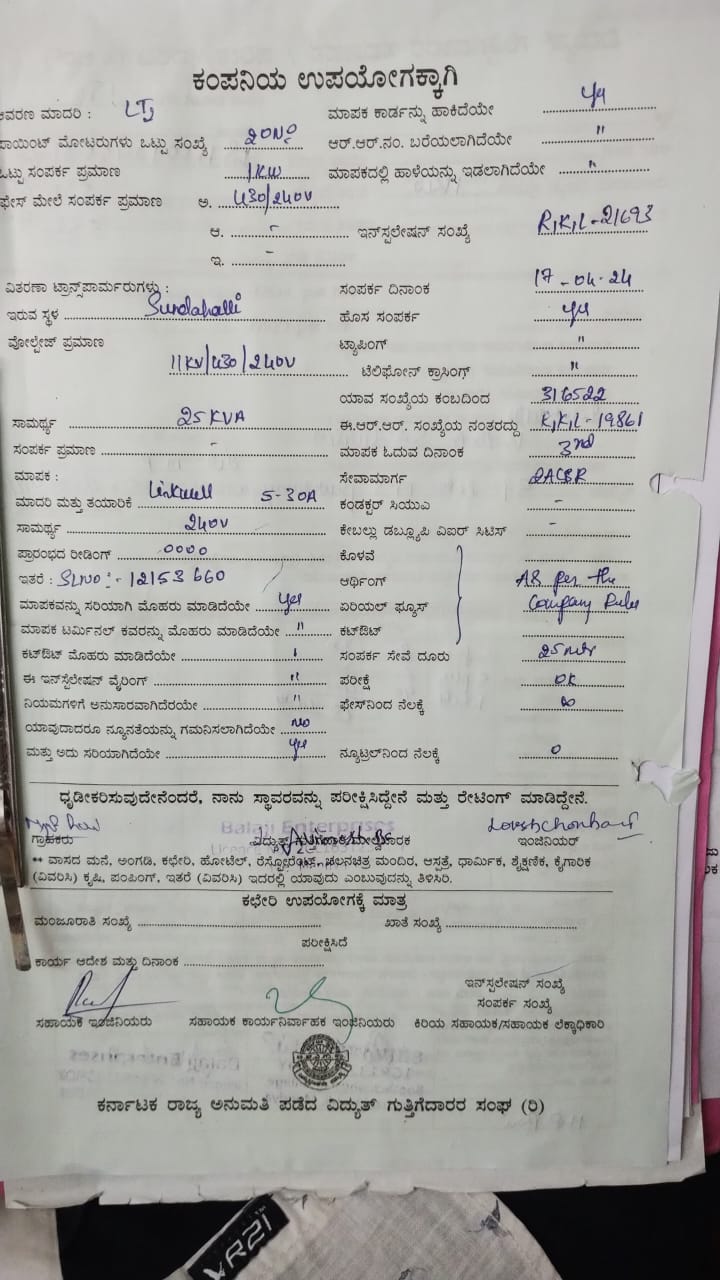 ಕಂಪನಿಯ ಉಪಯೋಗಕ್ಕಾಗಿ
ಆವರಣ ಮಾದರಿ : LT ಮಾಪಕ ಕಾರ್ಡನ್ನು ಹಾಕಿದೆಯೇ
ಪಾಯಿಂಟ್ ಮೋಟರುಗಳು ಒಟ್ಟು ಸಂಖ್ಯೆ ಆರ್.ಆರ್.ನಂ. ಬರೆಯಲಾಗಿದೆಯೇ "
ಒಟ್ಟು ಸಂಪರ್ಕ ಪ್ರಮಾಣ 1KW ಮಾಪಕದಲ್ಲಿ ಹಾಳೆಯನ್ನು ಇಡಲಾಗಿದೆಯೇ "
ಫೇಸ್ ಮೇಲೆ ಸಂಪರ್ಕ ಪ್ರಮಾಣ ಅ. 430/240V
ಆ. - ಇನ್‌ಸ್ಟಲೇಷನ್ ಸಂಖ್ಯೆ R,K,L-21693
ಇ. -
ವಿತರಣಾ ಟ್ರಾನ್ಸ್‌ಪಾರ್ಮರುಗಳು : ಸಂಪರ್ಕ ದಿನಾಂಕ 17-04-24
ಇರುವ ಸ್ಥಳ Surdahalli ಹೊಸ ಸಂಪರ್ಕ
ವೋಲ್ಟೇಜ್ ಪ್ರಮಾಣ 11KV/430/240V ಟ್ಯಾಪಿಂಗ್ "
ಟೆಲಿಫೋನ್ ಕ್ರಾಸಿಂಗ್ "
ಯಾವ ಸಂಖ್ಯೆಯ ಕಂಬದಿಂದ 316522
ಸಾಮರ್ಥ್ಯ 25KVA ಈ.ಆರ್.ಆರ್. ಸಂಖ್ಯೆಯ ನಂತರದ್ದು R,K,L-19861
ಸಂಪರ್ಕ ಪ್ರಮಾಣ - ಮಾಪಕ ಓದುವ ದಿನಾಂಕ 3rd
ಮಾಪಕ : ಸೇವಾಮಾರ್ಗ
ಮಾದರಿ ಮತ್ತು ತಯಾರಿಕೆ Linkwell 5-30A ಕಂಡಕ್ಟರ್ ಸಿಯುಎ -
ಸಾಮರ್ಥ್ಯ 240V ಕೇಬಲ್ಲು ಡಬ್ಲ್ಯೂಪಿ ವಿಐರ್ ಸಿಟಿಸ್ -
ಪ್ರಾರಂಭದ ರೀಡಿಂಗ್ 0000 ಕೊಳವೆ
ಇತರೆ : SLNO :- 12153660 ಆರ್ಥಿಂಗ್ As per the
ಮಾಪಕವನ್ನು ಸರಿಯಾಗಿ ಮೊಹರು ಮಾಡಿದೆಯೇ Yes ಏರಿಯಲ್ ಫ್ಯೂಸ್ Company Rules
ಮಾಪಕ ಟರ್ಮಿನಲ್ ಕವರನ್ನು ಮೊಹರು ಮಾಡಿದೆಯೇ " ಕಟ್‌ಔಟ್
ಕಟ್‌ಔಟ್ ಮೊಹರು ಮಾಡಿದೆಯೇ ಸಂಪರ್ಕ ಸೇವೆ ದೂರು 25mtr
ಈ ಇನ್‌ಸ್ಟಲೇಷನ್ ವೈರಿಂಗ್ " ಪರೀಕ್ಷೆ OK
ನಿಯಮಗಳಿಗೆ ಅನುಸಾರವಾಗಿದೆರೆಯೇ " ಫೇಸ್‌ನಿಂದ ನೆಲಕ್ಕೆ ∞
ಯಾವುದಾದರೂ ನ್ಯೂನತೆಯನ್ನು ಗಮನಿಸಲಾಗಿದೆಯೇ No
ಮತ್ತು ಅದು ಸರಿಯಾಗಿದೆಯೇ ನ್ಯೂಟ್ರಲ್‌ನಿಂದ ನೆಲಕ್ಕೆ 0
ಧೃಡೀಕರಿಸುವುದೇನೆಂದರೆ, ನಾನು ಸ್ಥಾವರವನ್ನು ಪರೀಕ್ಷಿಸಿದ್ದೇನೆ ಮತ್ತು ರೇಟಿಂಗ್ ಮಾಡಿದ್ದೇನೆ.
Balaji Enterprises
ಗ್ರಾಹಕರು ಇಂಜಿನಿಯರ್
** ವಾಸದ ಮನೆ, ಅಂಗಡಿ, ಕಛೇರಿ, ಹೋಟೆಲ್, ರೆಸ್ಟೋರೆಂಟ್, ಚಲನಚಿತ್ರ ಮಂದಿರ, ಆಸ್ಪತ್ರೆ, ಧಾರ್ಮಿಕ, ಶೈಕ್ಷಣಿಕ, ಕೈಗಾರಿಕ
(ವಿವರಿಸಿ) ಕೃಷಿ, ಪಂಪಿಂಗ್, ಇತರೆ (ವಿವರಿಸಿ) ಇದರಲ್ಲಿ ಯಾವುದು ಎಂಬುವನ್ನು ತಿಳಿಸಿರಿ.
ಕಛೇರಿ ಉಪಯೋಗಕ್ಕೆ ಮಾತ್ರ
ಮಂಜೂರಾತಿ ಸಂಖ್ಯೆ ಖಾತೆ ಸಂಖ್ಯೆ
ಪರೀಕ್ಷಿಸಿದೆ
ಕಾರ್ಯ ಆದೇಶ ಮತ್ತು ದಿನಾಂಕ
ಇನ್‌ಸ್ಟಲೇಷನ್ ಸಂಖ್ಯೆ
ಸಂಪರ್ಕ ಸಂಖ್ಯೆ
ಸಹಾಯಕ ಇಂಜಿನಿಯರು ಸಹಾಯಕ ಕಾರ್ಯನಿರ್ವಾಹಕ ಇಂಜಿನಿಯರು ಕಿರಿಯ ಸಹಾಯಕ/ಸಹಾಯಕ ಲೆಕ್ಕಾಧಿಕಾರಿ
ಕರ್ನಾಟಕ ರಾಜ್ಯ ಅನುಮತಿ ಪಡೆದ ವಿದ್ಯುತ್ ಗುತ್ತಿಗೆದಾರರ ಸಂಘ (ರಿ)
VR21